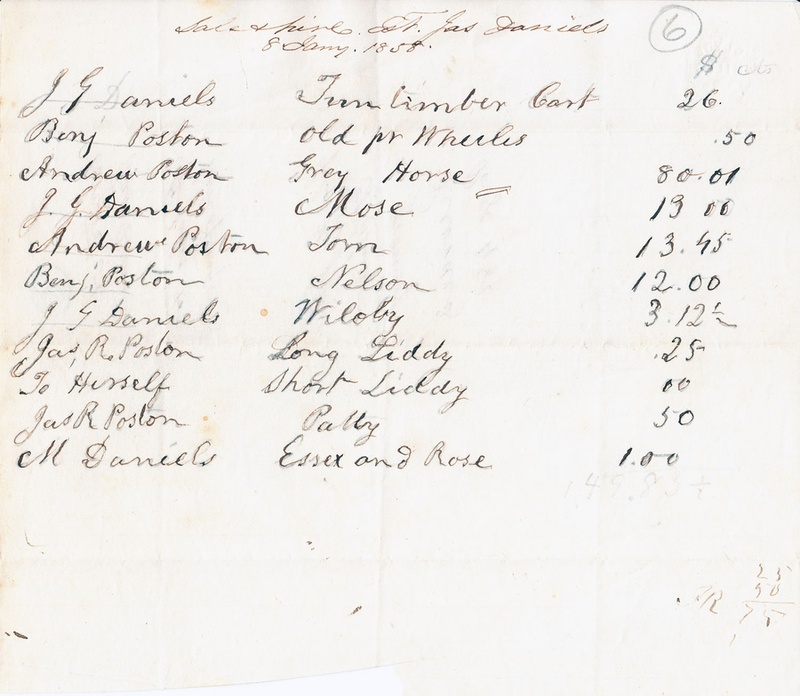 Sale & hire. Est. Jas Daniels
8 Jany. 1858.
6
$ cts
J G Daniels Tum timber Cart 26.
Benj Poston old pr Wheeles .50
Andrew Poston Grey Horse 80.01
J. G. Daniels Mose 13 00
Andrew Poston Tom 13.45
Benj. Poston Nelson 12.00
J G Daniels Wiloby 3.12½
Jas, R. Poston Long Liddy .25
To Herself Short Liddy 00
Jas R Poston Patty 50
M Daniels Essex and Rose 1.00
149.83½
25
50
R 75